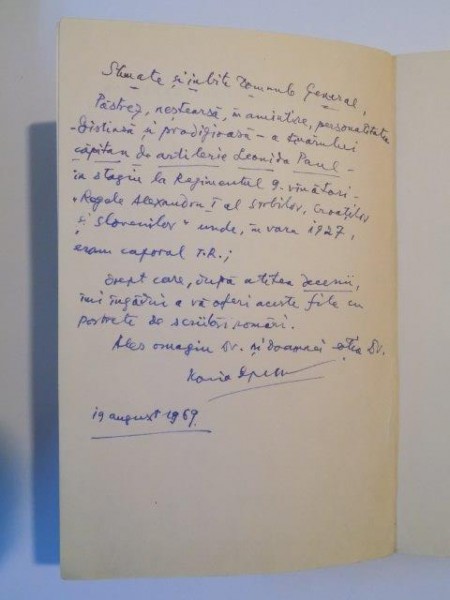 Stimate și iubite Domnule General,
Păstrez, neștearsă, în amintire, personalitatea
- distinsă și prodigioasă - a tânărului
căpitan de artilerie Leonida Paul -
în stagiu la Regimentul 9. vânători -
"Regele Alexandru I al Sârbilor, Croaților
și Slovenilor" unde, în vara 1927,
eram caporal T.R.;
Drept care, după atâtea decenii,
îmi îngădui a vă oferi aceste file cu
portrete de scriitori români.
Ales omagiu Dv. și doamnei Dv.
Horia
19 august 1969.